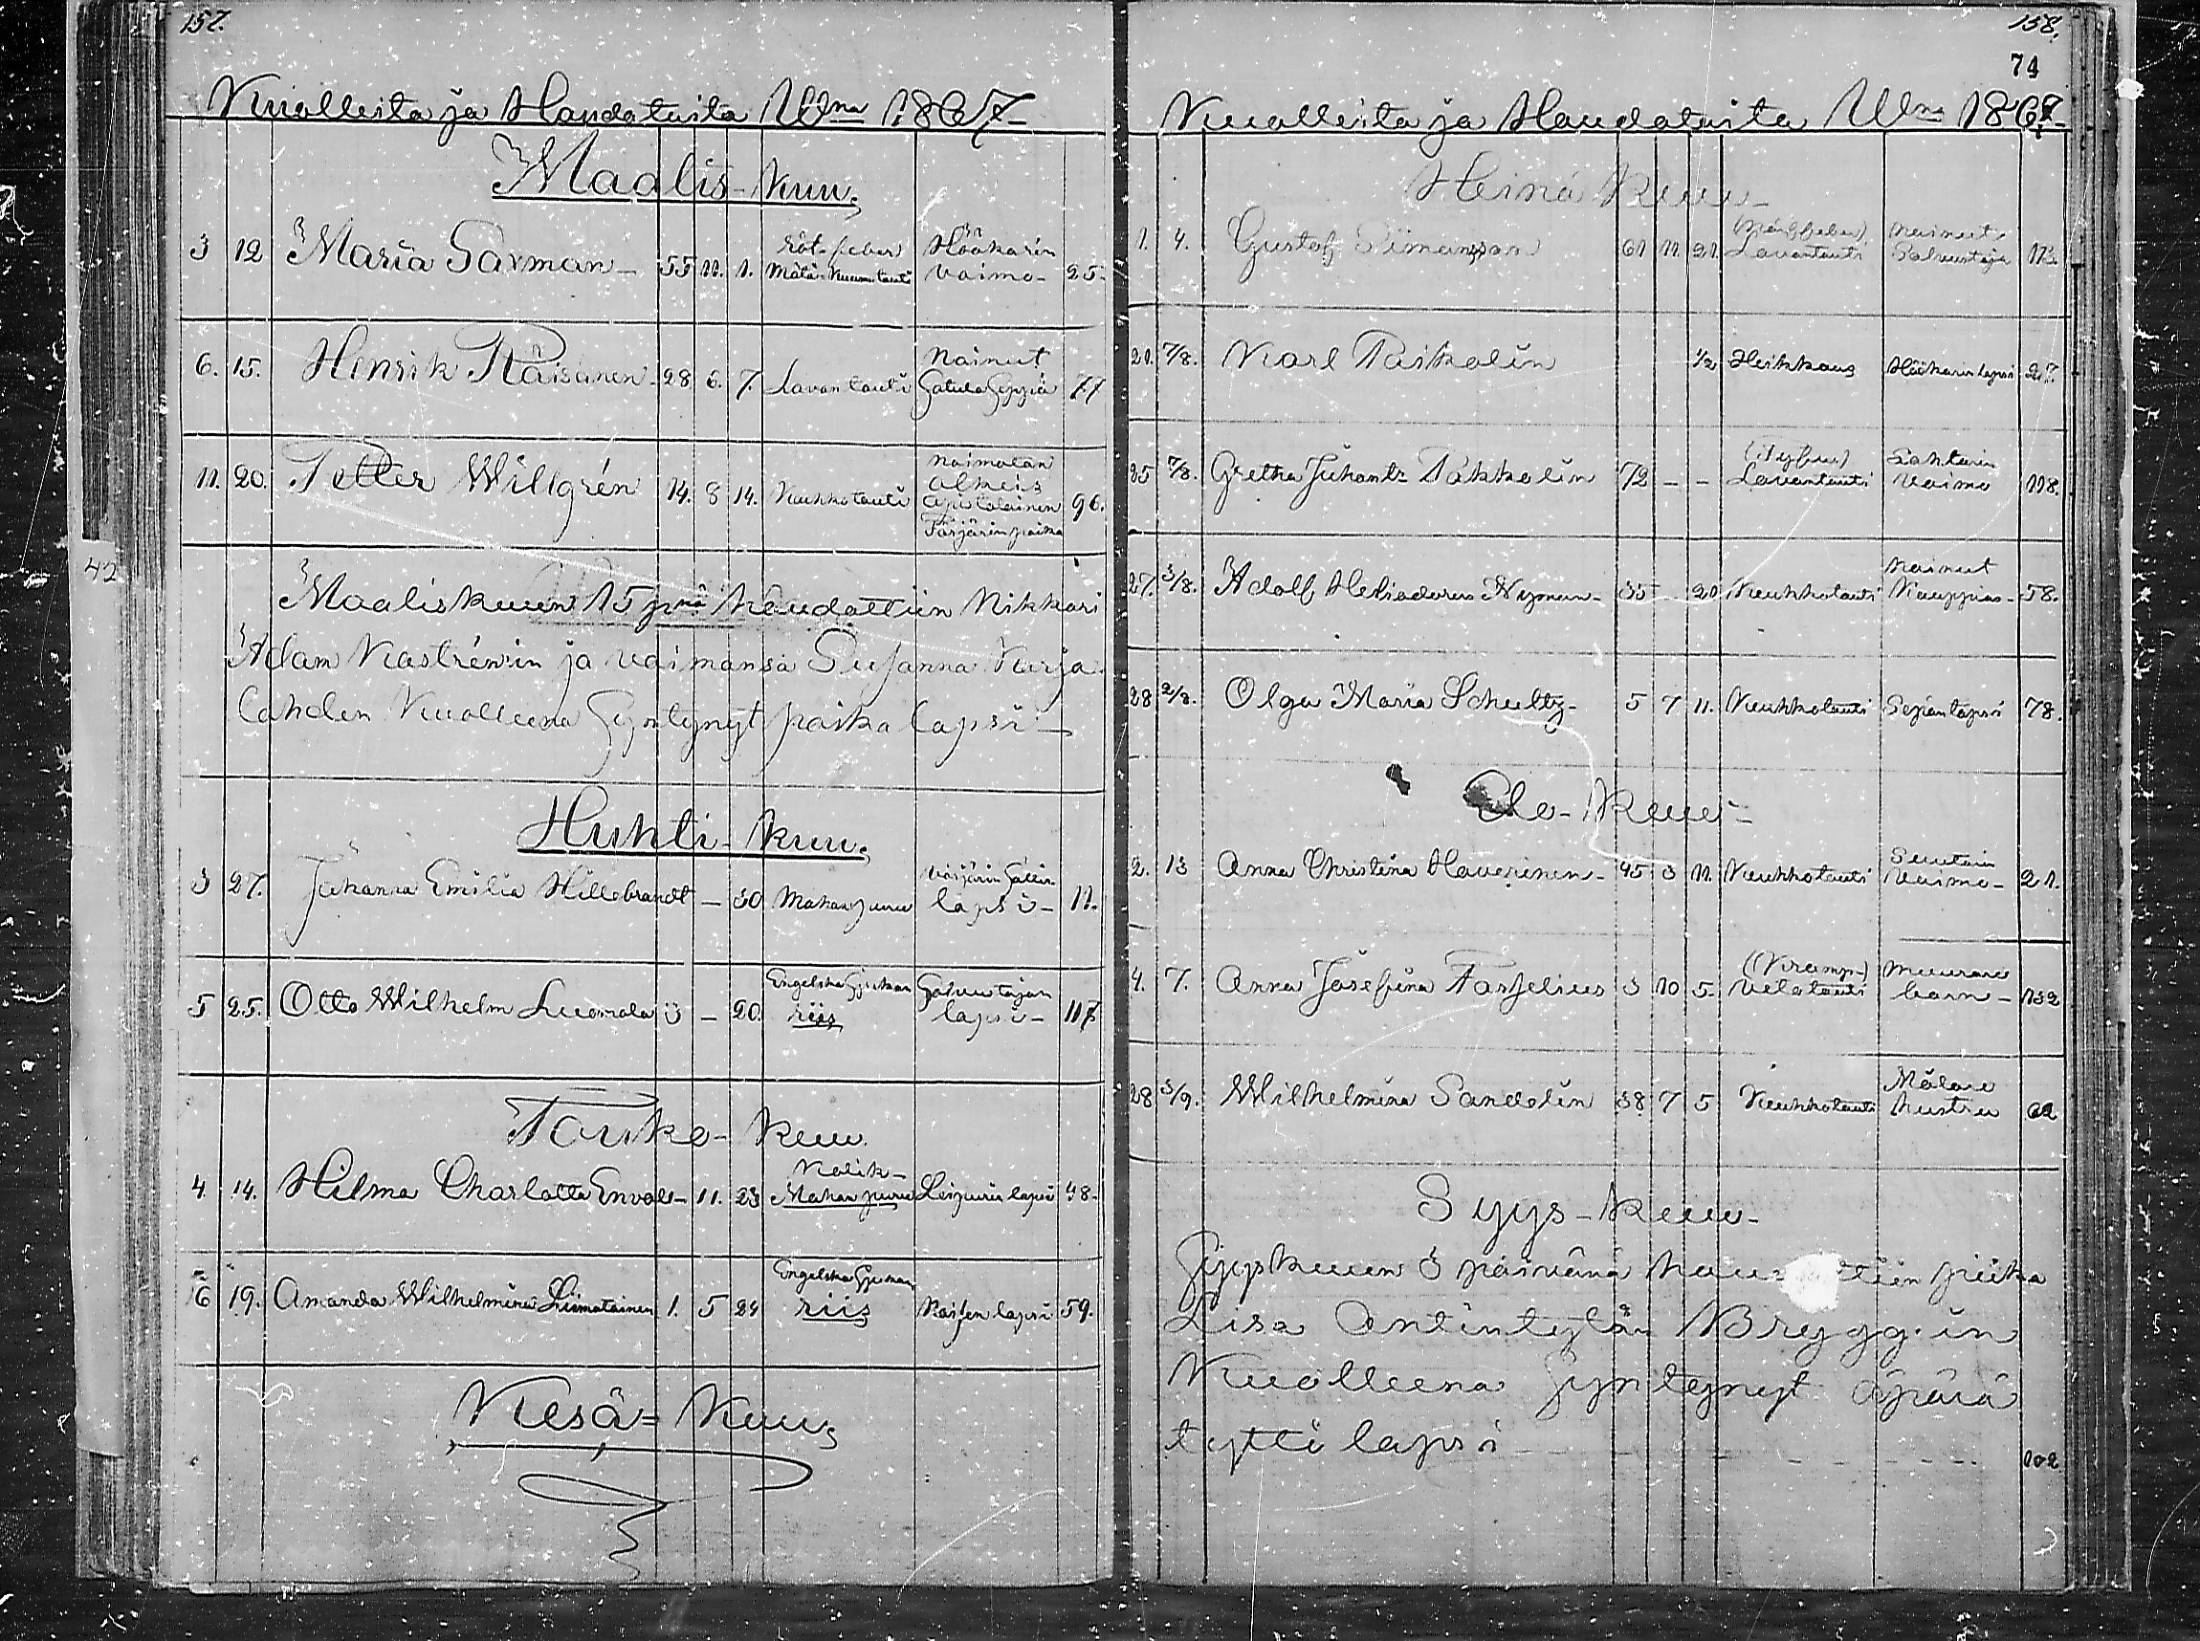 157.
Kuolleita ja Haudatuita Wna 1867
Maalis-kuu.
3 12 Maria Saxman 55 11. 1. Röt-feber Mätä-kuumetauti Höökarin vaimo 25.
6. 15. Henrik Räisänen 28 6. 7. Lavantauti Nainut Satulaseppä 77
11. 20. Petter Willgrén 14. 8 14. Keuhkotauti Naimatoin Alkeis opistolainen Färjärin poika 96.
Maaliskuun 15 pnä haudattiin Nikkari
Adam Kastrén'in ja vaimonsa Susanna Karja
lahden Kuolleena Syntynyt poika lapsi
Huhti-kuu.
3 27. Johanna Emilia Hillebrandt — 30 Mahanpuru lapsi 11.
5 25. Otto Wilhelm Luomala 3 — 20. Engelska Sjukan riis Salvutajan lapsi 117
Touko-kuu.
4. 14. Hilma Charlotta Envald — 11. 23 Kolik- Mahanpuru Leipurin lapsi 48.
6 19. Amanda Wilhelmina Liimatainen 1. 5 24 Engelska Sjukan riis Raijen lapsi 59.
Kesä-Kuu
158.
74
Kuolleita ja Haudatuita Wna 1867
Heinä kuu
1. 4. Gustaf Simonsson 61 11. 21. Lavantauti nainut Salvuutaja 113.
21. 7/8. Karl Paikolin ½ Heikkous Höökarin lapsi 27.
25 7/8. Gretha Juhont. Pakkalin 72 — — (Tyfus) Lavantauti Lahtarin Vaimo 118.
27. 3/8. Adolf Heliodorus Nyman 35 20 Keuhkotauti nainut Kauppias 58.
28 2/8. Olga Maria Schultz 5 7 11. Keuhkotauti Sepän lapsi 78.
Elo-kuu
2. 13 Anna Christina Haverinen 45 3 11. Keuhkotauti Suutarin Vaimo 21.
4. 7. Anna Josefina Forselius 3 10 5. (Kramp.) Vetotauti Muurare barn 132
28 3/9. Wilhelmina Sandelin 38 7 5 Keuhkotauti Målare hustru 62
Syys-kuu
Syyskuun 3 päivänä hau ttiin piika
Lisa Antintytär Brygg'in
Kuolleena Syntynyt äpärä
tyttö lapsi 102
42